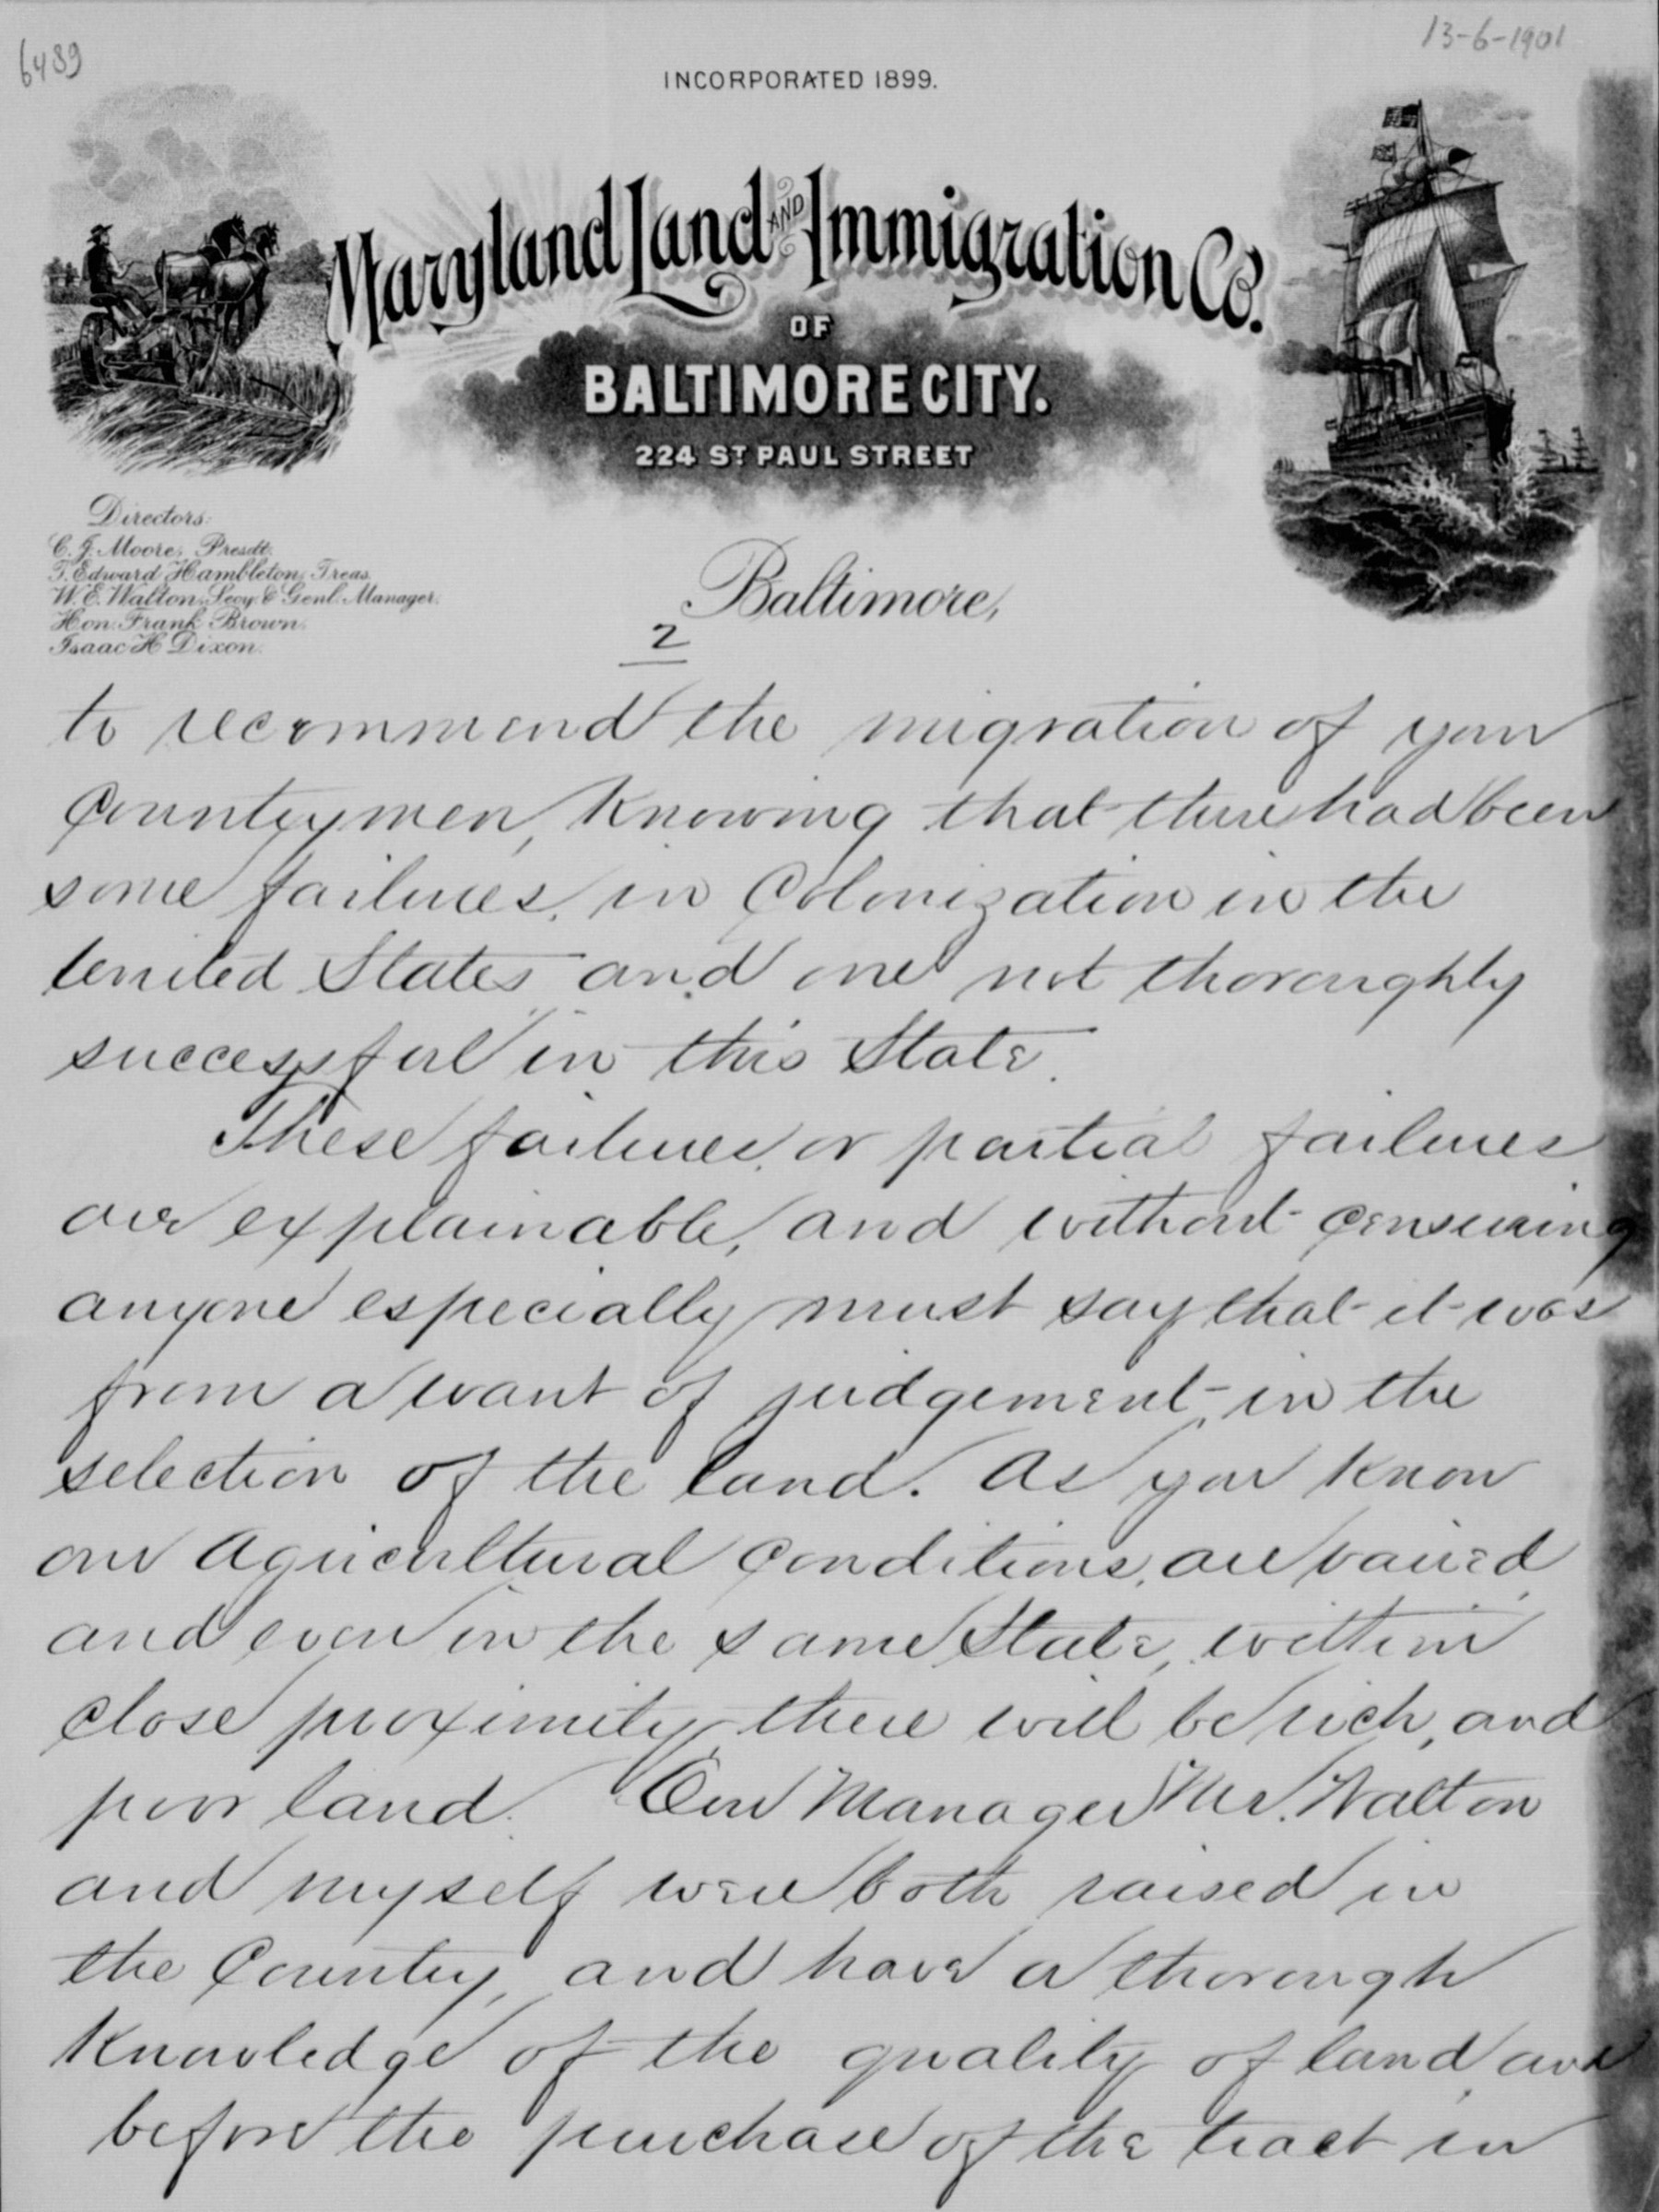 6489
13-6-1901
INCORPORATED 1899.
Maryland Land AND Immigration Co.
OF
BALTIMORE CITY.
224 ST PAUL STREET
Directors:
C. J. Moore, Presdt.
T. Edward Hambleton, Treas.
W. E. Walton, Secy. & Genl. Manager.
Hon. Frank Brown.
Isaac H Dixon.
Baltimore,
2
to recommend the migration of your
Countrymen, Knowing that there had been
some failures, in Colonization in the
United States and one not thoroughly
successful in this State.
These failures, or partial failures
are explainable, and without censuring
anyone especially must say that it was
from a want of judgement, in the
selection of the land. As you know
our Agricultural Conditions, are varied
and even in the same State, within
close proximity, there will be rich, and
poor land. Our Manager Mr. Walton
and myself were both raised in
the Country, and have a thorough
Knowledge of the quality of land, and
before the purchase of the tract in